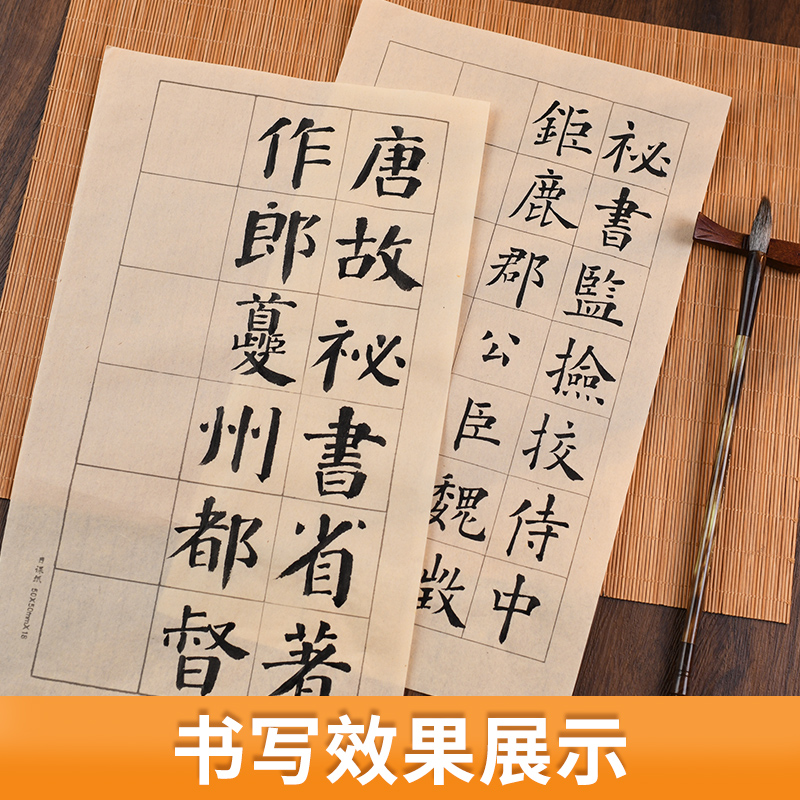 唐故祕書省著
作郎夔州都督
祕書監撿挍侍中
鉅鹿郡公臣魏徵
50X50mmX18
书写效果展示